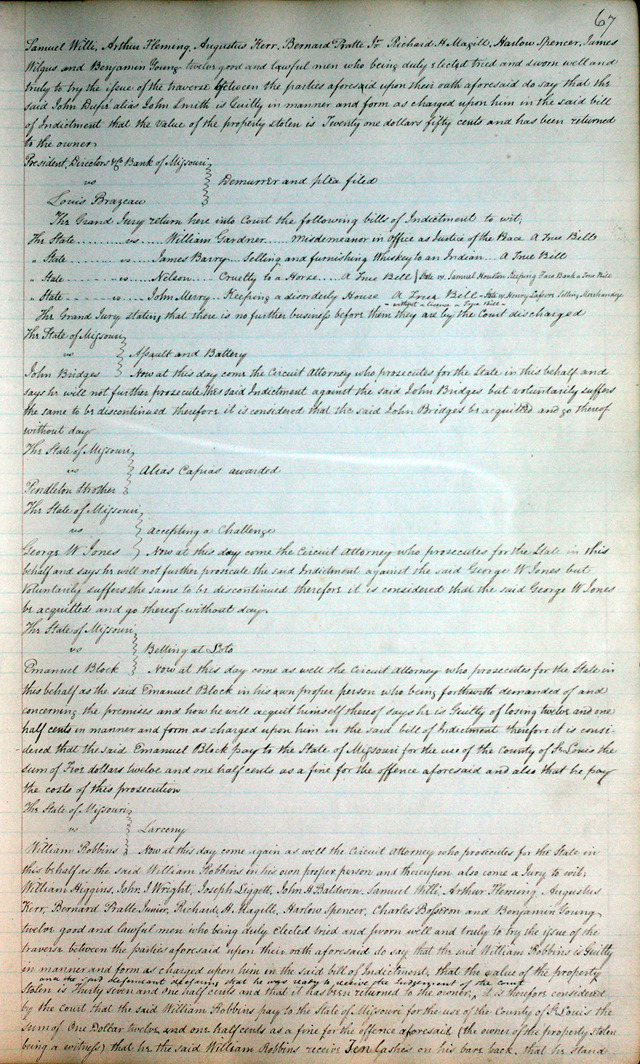 67
Samuel Willi, Arthur Fleming, Augustus Kerr, Bernard Pratte Jr Richard H. Magill, Harlow Spencer, James
Wilgus and Benjamin Young twelve good and lawful men who being duly elected tried and sworn well and
truly to try the issue of the traverse between the parties aforesaid upon their oath aforesaid do say that the
said John alias John Smith is Guilty in manner and form as charged upon him in the said bill
of Indictment that the value of the property stolen is Twenty one dollars fifty cents and has been returned
to the owner.
President, Directors &C Bank of Missouri
vs Demurrer and plea filed
Louis Brazeau
The Grand Jury return here into Court the following bills of Indictment to wit;
The State ........ vs ..... William Gardner .... Misdemeanor in office as Justice of the Peace A True Bill
" State ........ vs ..... James Barry .. Selling and furnishing Whiskey to an Indian .. A True Bill
" State ........ vs ..... Nelson .. Cruelty to a Horse .... A True Bill / State vs. Samuel Houston Keeping Faro Bank a True Bill
" State ........ vs ..... John Merry .. Keeping a disorderly House A True Bill - State vs Henry Selling Merchandize
without a license a True Bill
The Grand Jury stating that there is no further business before them they are by the Court discharged
The State of Missouri
vs Assault and Battery
John Bridges Now at this day come the Circuit Attorney who prosecutes for the State in this behalf and
says he will not further prosecute the said Indictment against the said John Bridges but voluntarily suffers
the same to be discontinued therefore it is considered that the said John Bridges be acquitted and go thereof
without day
The State of Missouri
vs Alias Capias awarded
Pendleton Strother
The State of Missouri
vs Accepting a Challenge
George W Jones Now at this day come the Circuit Attorney who prosecutes for the State in this
behalf and says he will not further prosecute the said Indictment against the said George W Jones but
voluntarily suffers the same to be discontinued therefore it is considered that the said George W Jones
be acquitted and go thereof without day.
The State of Missouri
vs Betting at Loto
Emanuel Block Now at this day come as well the Circuit Attorney who prosecutes for the State in
this behalf as the said Emanuel Block in his own proper person who being forthwith demanded of and
concerning the premises and how he will acquit himself thereof says he is Guilty of losing twelve and one
half cents in manner and form as charged upon him in the said bill of Indictment therefore it is consi-
-dered that the said Emanuel Block pay to the State of Missouri for the use of the County of St Louis the
sum of Five dollars twelve and one half cents as a fine for the offence aforesaid and also that he pay
the costs of this prosecution
The State of Missouri
vs Larceny
William Robbins Now at this day come again as well the Circuit Attorney who prosecutes for the State in
this behalf as the said William Robbins in his own proper person and thereupon also come a Jury to wit,
William Higgins, John J Wright, Joseph Liggett, John A Baldwin, Samuel Willi, Arthur Fleming Augustus
Kerr, Bernard Pratte Junior, Richard H. Magill, Harlow Spencer, Charles Bosseron and Benjamin Young
twelve good and lawful men who being duly elected tried and sworn well and truly to try the issue of the
traverse between the parties aforesaid upon their oath aforesaid do say that the said William Robbins is Guilty
in manner and form as charged upon him in the said bill of Indictment, that the value of the property
and the said defendant declaring that he was ready to receive the Judgement of the court
stolen is Thirty seven and one half cents and that it has been returned to the owner, it is therefore considered
by the Court that the said William Robbins pay to the State of Missouri for the use of the County of St Louis the
sum of One Dollar twelve and one half cents as a fine for the offence aforesaid, (the owner of the property stolen
being a witness) that he the said William Robbins receive Ten Lashes on his bare back, that he Stand